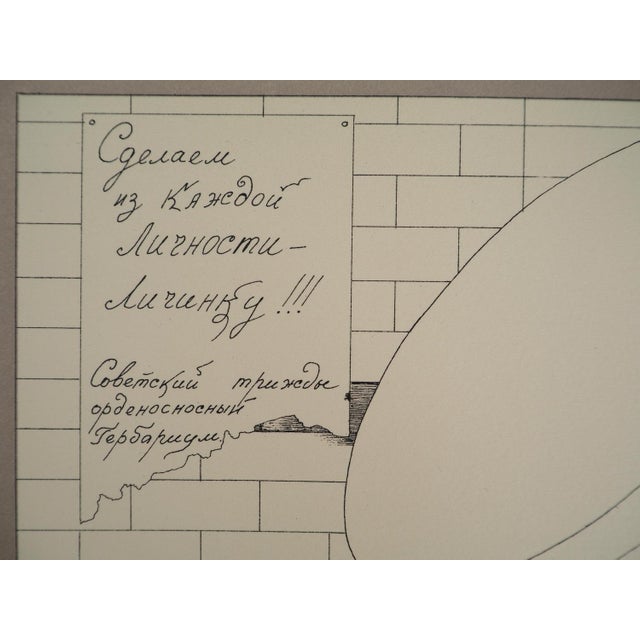 Сделаем
из каждой
Личности –
Личинку!!!
Советский трижды
орденосносный
Гербариум.